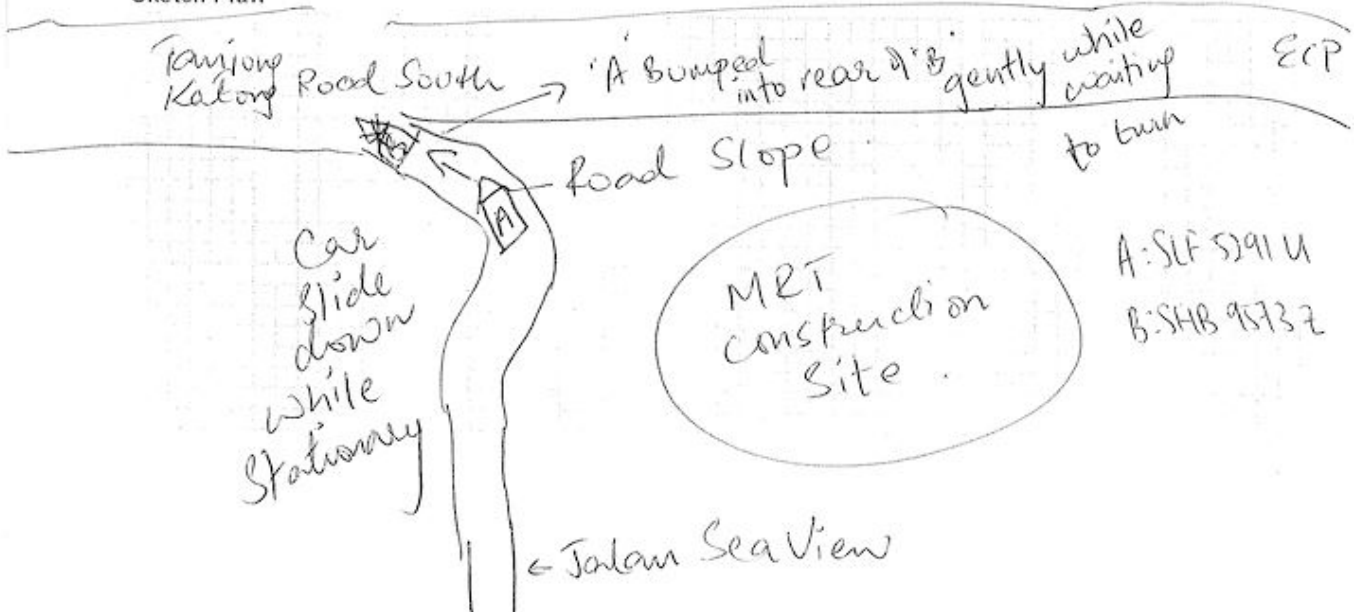 Sketch Plan
Tanjong
Katong Road South
'A' Bumped
into rear of 'B'
gently while
waiting
to turn
ECP
Road Slope
A
Car
slide
down
while
stationary
MRT
construction
site.
A: SLF 5291 U
B: SHB 9573 Z
Jalan Sea View